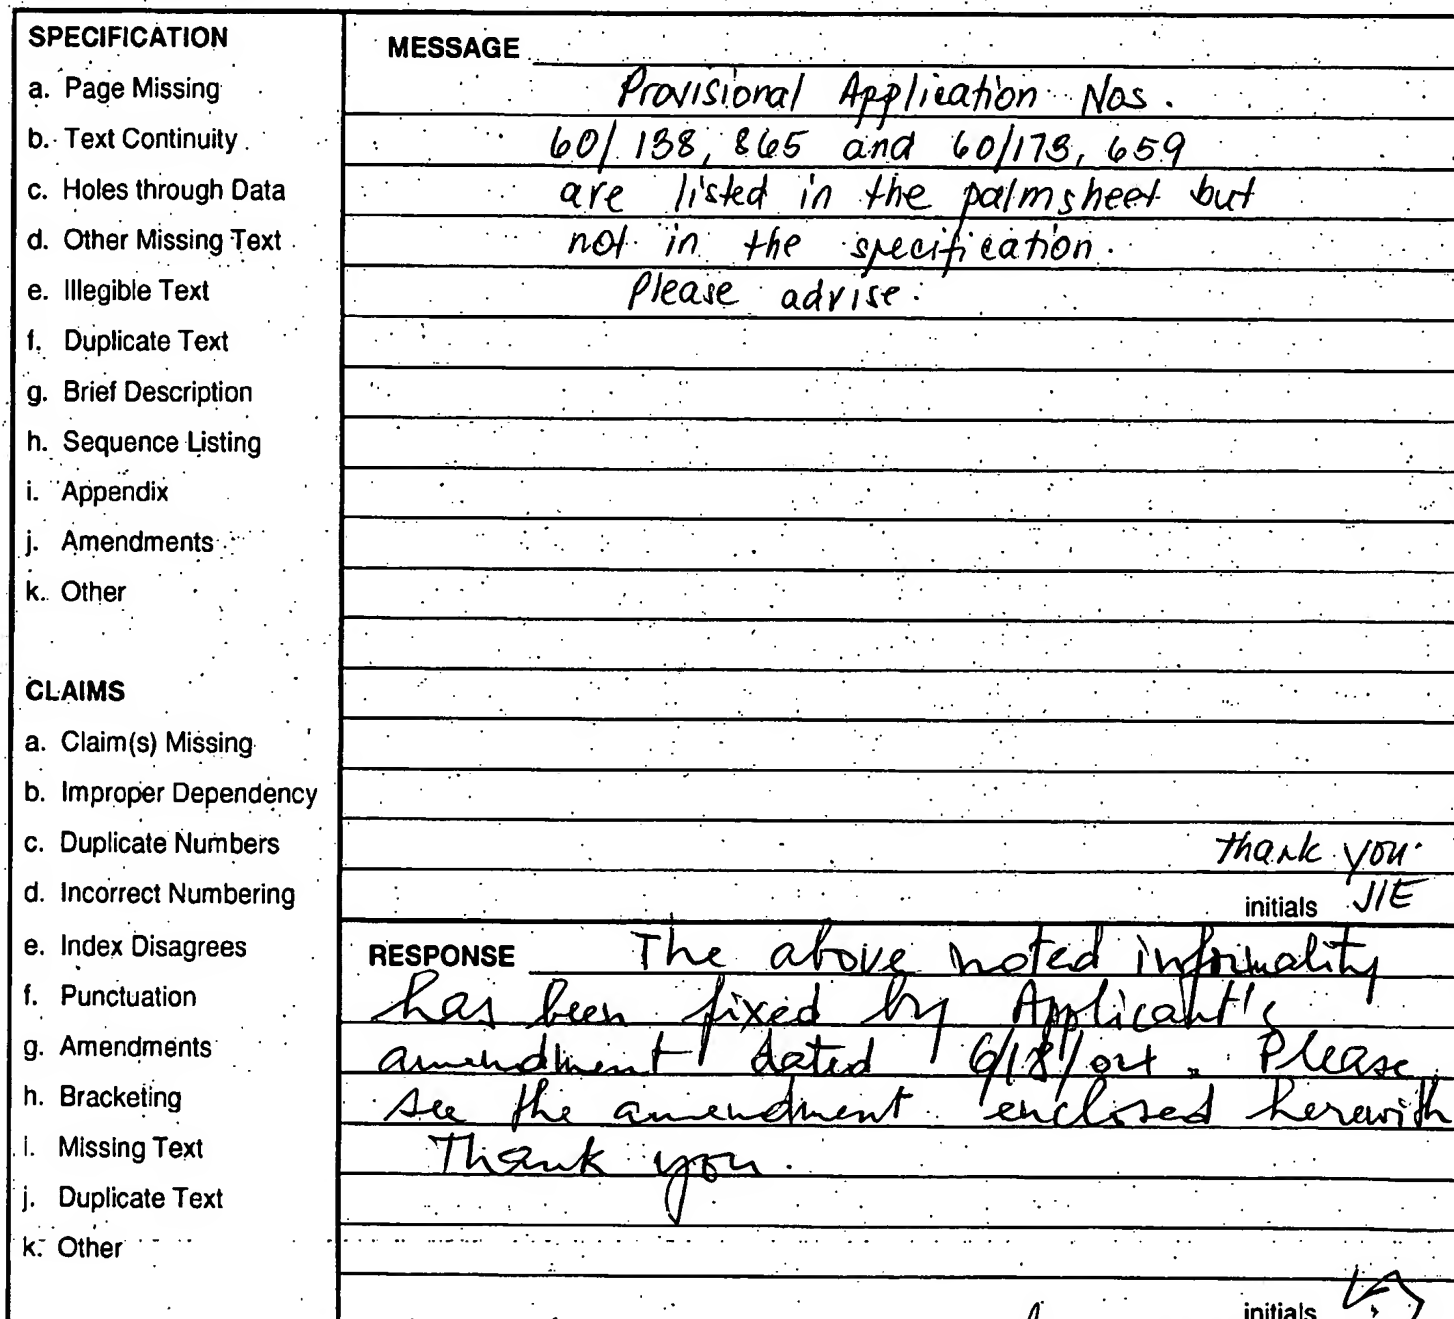 SPECIFICATION
a. Page Missing
b. Text Continuity
c. Holes through Data
d. Other Missing Text
e. Illegible Text
f. Duplicate Text
g. Brief Description
h. Sequence Listing
i. Appendix
j. Amendments
k. Other
CLAIMS
a. Claim(s) Missing
b. Improper Dependency
c. Duplicate Numbers
d. Incorrect Numbering
e. Index Disagrees
f. Punctuation
g. Amendments
h. Bracketing
i. Missing Text
j. Duplicate Text
k. Other
MESSAGE
Provisional Application Nos.
60/138,865 and 60/173,659
are listed in the palmsheet but
not in the specification.
Please advise.
thank you.
initials JIE
RESPONSE The above noted informality
has been fixed by Applicant's
amendment dated 6/18/04. Please
see the amendment enclosed herewith
Thank you.
initials